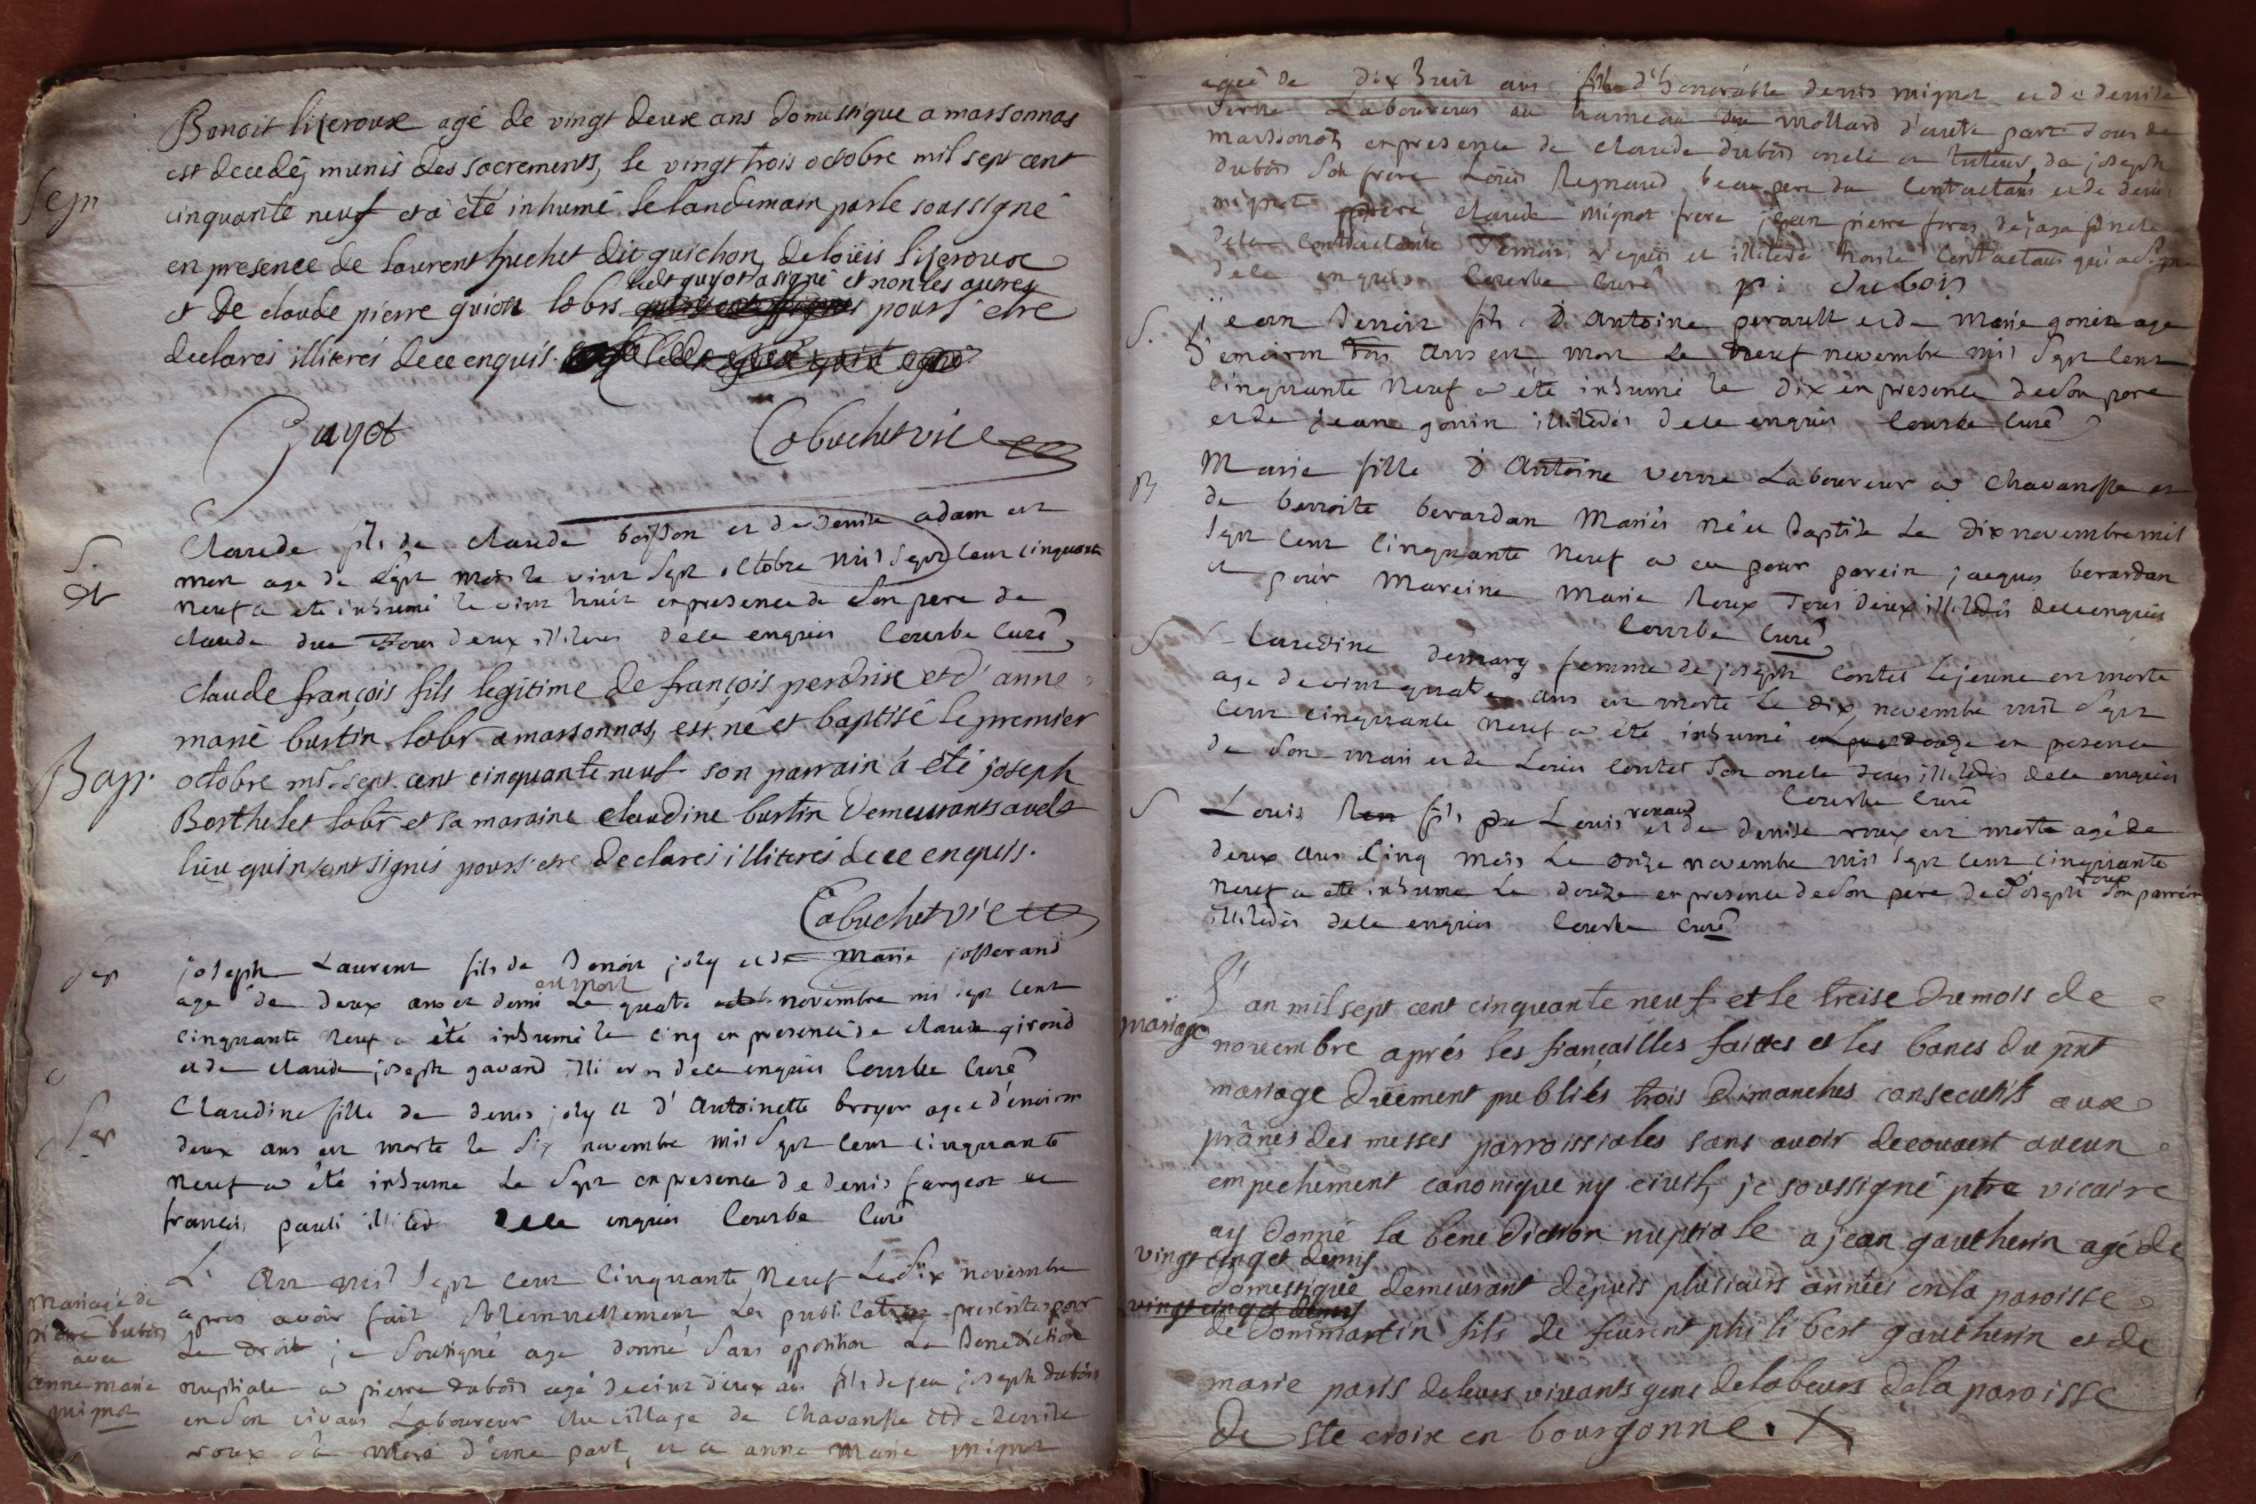 Benoit liseroux agé de vingt deux ans domestique a marsonnas
Sep
est decedé, munis des sacrements, le vingt trois octobre mil sept cent
cinquante neuf et a été inhumé le landemain par le soussigné
en presence de laurent huchet dit guichon, de loüis liseroux
ledt guyot a signé et non les autres
et de claude pierre guiot lobrs pours'etre
declarés illiterés de ce enquis.
Guyot Cabuchet vic
S.
Claude fils de claude boisson et de denise adam est
mort age de sept mois le vint sept octobre mil sept cent cinquante
neuf a été inhumé le vint huit en presence de son pere de
claude duc tous deux illiteres de ce enquis Courbe Curé
claude françois fils legitime de françois perdrix et d'anne
marie burtin lobr a marsonnas, est né et baptisé le premier
Bap.
octobre mil sept cent cinquante neuf son parrain a été joseph
Berthelet lobr et sa maraine claudine burtin demeurants audt
lieu qui n'ont signés pours'etre declarés illiterés de ce enquis.
Cabuchet vic
Sep
joseph Laurent fils de benoit joly et de marie josserand
est mort
age de deux ans et demi le quatre novembre mil sept cent
cinquante neuf a été inhumé le cinq en presence de claude girond
et de claude joseph gavand de ce enquis Courbe Curé
Sep
Claudine fille de denis joly et d'Antoinette broyer agee d'environ
deux ans est morte le six novembre mil sept cent cinquante
neuf a été inhumé le sept en presence de denis fargeot et
francois pauli de ce enquis Courbe Curé
L'an mil sept cent cinquante neuf le dix novembre
mariage de
pierre dubois
avec
anne marie
mignot
apres avoir fait solemnellement les publications prescrites pour
le droit je soussigné aye donné sans oposition la benediction
nuptiale a pierre dubois agé de vint deux ans fils de feu joseph dubois
en son vivant Laboureur au village de Chavanosse et de denise
roux sa mere d'une part, et a anne marie mignot
ageé de dix huit ans fille d'honorable denis mignot et de denise
verne Laboureurs au hameau du mollard d'autre part tous de
marsonnas en presence de claude dubois oncle et tuteur, de joseph
dubois son frere Loüis Regnaud beau pere du contractant et de denis
mignot pere claude mignot frere jean pierre oncle
de la contractante temoins requis et illiteré horsle contractant qui a signé
de ce enquis Courbe curé pi dubois
S.
jean benoit fils d'Antoine perault et de marie gonin age
d'environ trois ans est mort le neuf novembre mil sept cent
cinquante neuf a été inhumé le dix en presence de son pere
et de jean gonin illiterés de ce enquis Courbe Curé
B
Marie fille d'Antoine verne Laboureur a Chavanosse et
de benoite berardan mariés né et baptisé le dix novembre mil
sept cent cinquante neuf a eu pour parein jacques berardan
et pour mareine marie Roux tous deux illiterés de ce enquis
Courbe Curé
S
Claudine femme de joseph contet lejeune est morte
age de vint quatre ans est morte le dix novembre mil sept
cent cinquante neuf a été inhumé en presence
de son mari et de Louis contet son oncle tous illiterés de ce enquis
Courbe Curé
S
Louis fils de Louis renaud et de denise roux est morte agé de
deux ans cinq mois le onze novembre mil sept cent cinquante
neuf a été inhumé le douze en presence de son pere de joseph roux son parrein
illiterés de ce enquis Courbe Curé
mariage
L'an mil sept cent cinquante neuf et le treise du mois de
novembre aprés les fiançailles faittes et les bancs du pnt
mariage düement publiés trois dimanches consecutifs aux
prônes des messes parroissiales sans avoir decouvert aucun
empechement canonique ny civil, je soussigné ptre vicaire
ay donné la benediction nuptiale a jean gautherin agé de
vingt cinq et demis
domestique demeurant depuis plusieurs années en la paroisse
vingt cinq et demis
de dommartin fils de feu philibert gautherin et de
marie paris de leurs vivants gens de labeurs de la paroisse
de ste croix en bourgonne. X